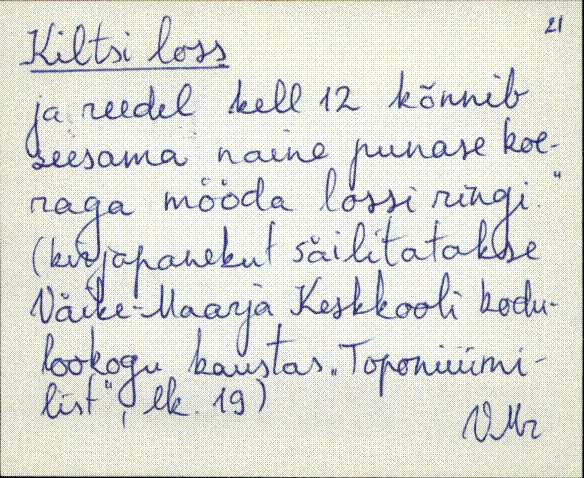 21
Kiltsi loss
ja reedel kell 12 kõnnib
seesama naine punase koe-
raga mööda lossi ringi."
(kirjapanekut säilitatakse
Väike-Maarja Keskkooli kodu-
lookogu kaustas „Toponüümi-
list", lk. 19)
VMr